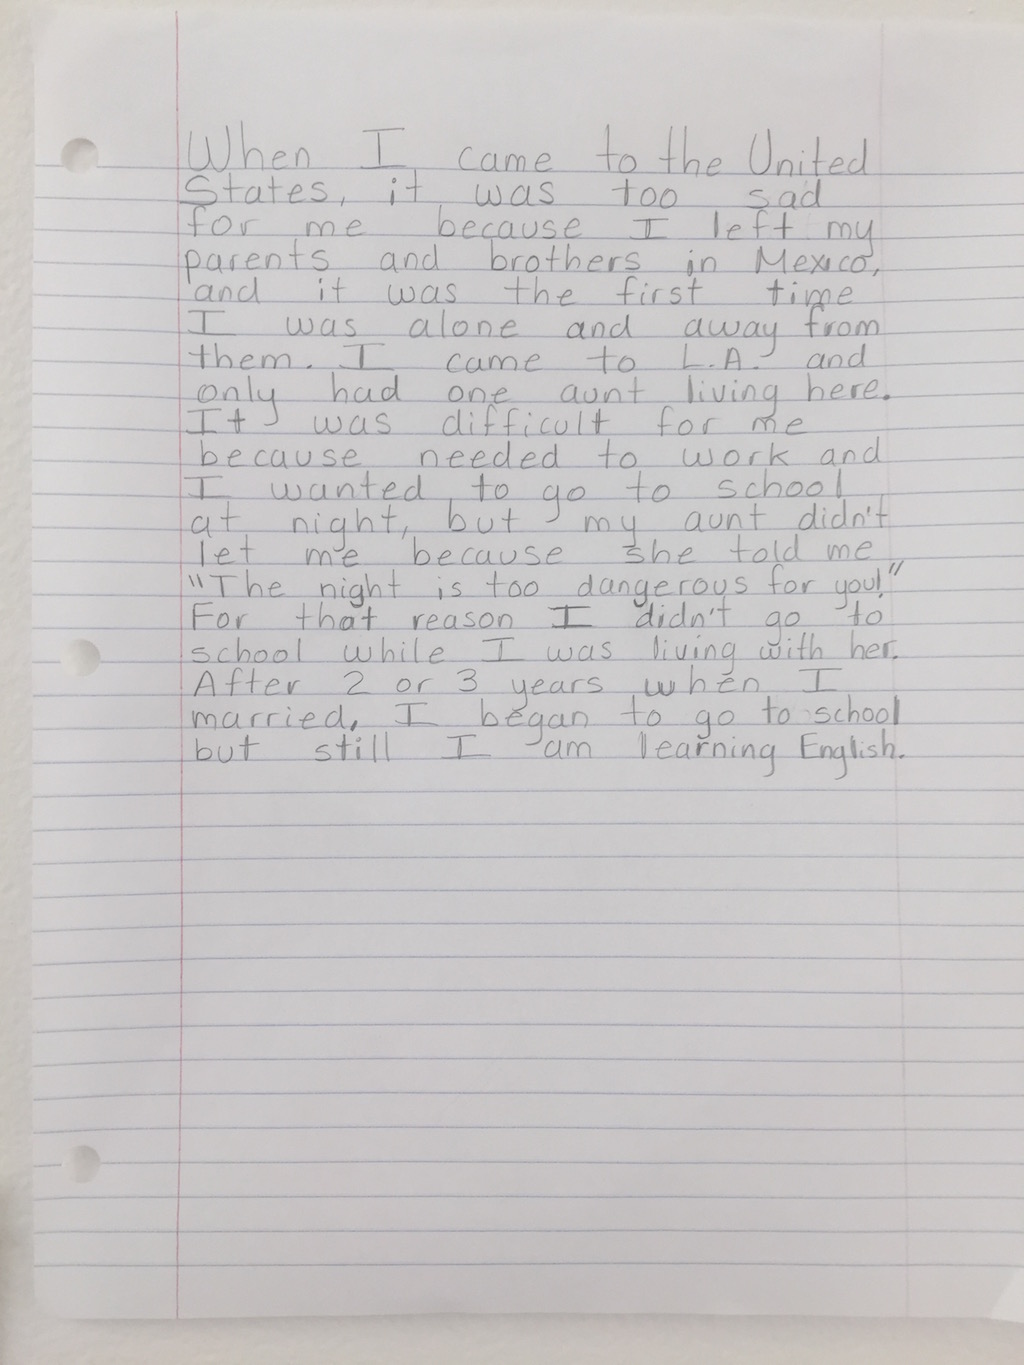 When I came to the United
States, it was too sad
for me because I left my
parents and brothers in Mexico,
and it was the first time
I was alone and away from
them. I came to L.A. and
only had one aunt living here.
It was difficult for me
because needed to work and
I wanted to go to school
at night, but my aunt didn't
let me because she told me
"The night is too dangerous for you!"
For that reason I didn't go to
school while I was living with her.
After 2 or 3 years when I
married, I began to go to school
but still I am learning English.